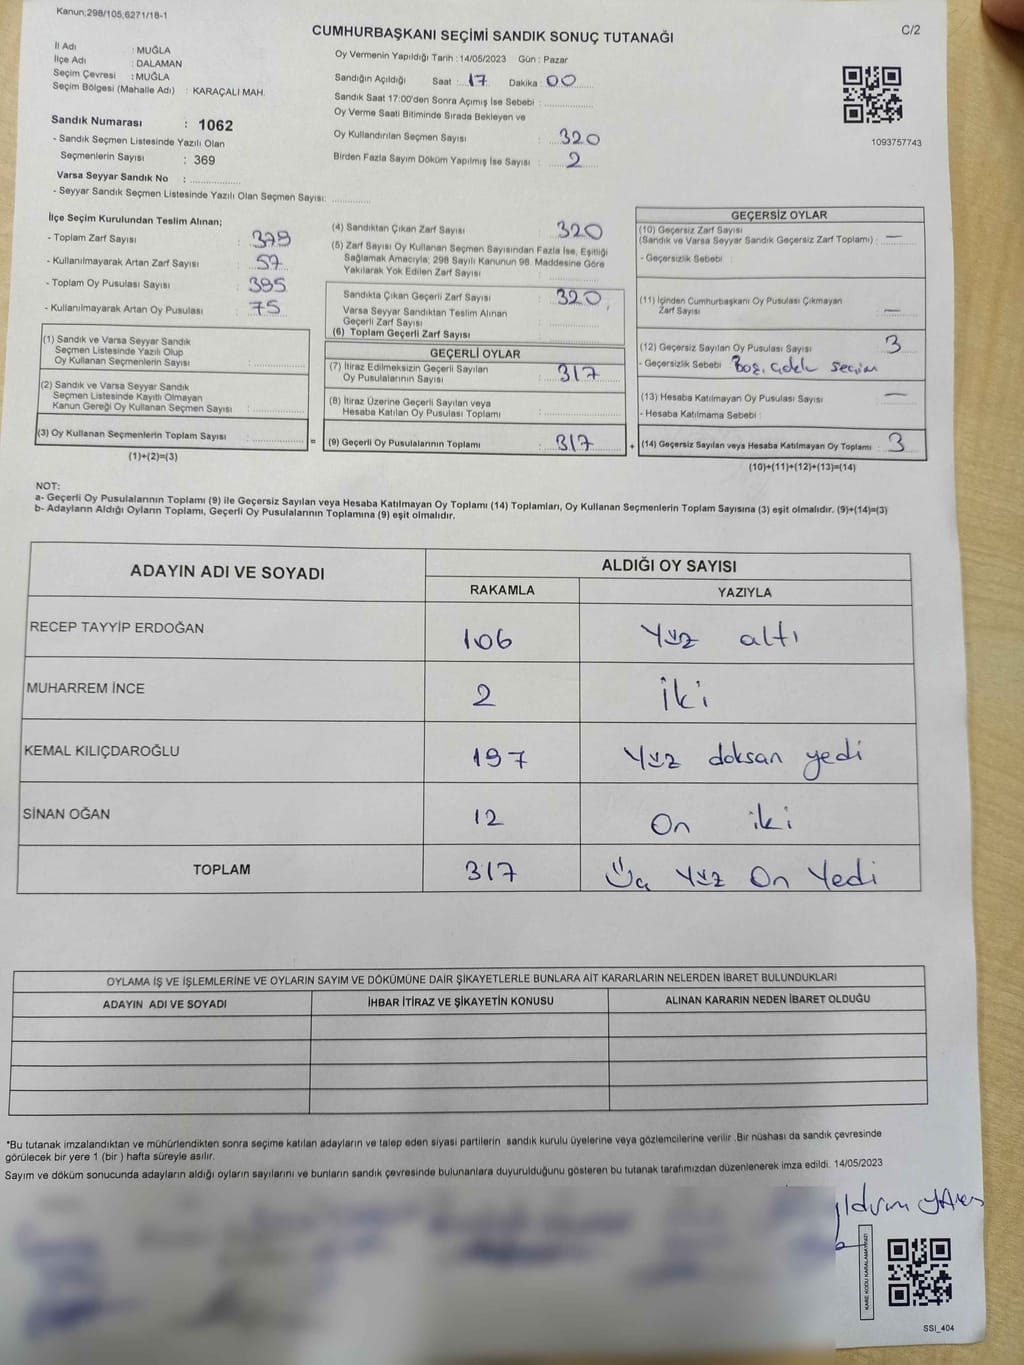 Kanun;298/105,6271/18-1
C/2
CUMHURBAŞKANI SEÇİMİ SANDIK SONUÇ TUTANAĞI
İl Adı : MUĞLA
İlçe Adı : DALAMAN
Seçim Çevresi : MUĞLA
Seçim Bölgesi (Mahalle Adı) : KARAÇALI MAH.
Sandık Numarası : 1062
- Sandık Seçmen Listesinde Yazılı Olan
Seçmenlerin Sayısı : 369
Varsa Seyyar Sandık No :
- Seyyar Sandık Seçmen Listesinde Yazılı Olan Seçmen Sayısı:
Oy Vermenin Yapıldığı Tarih : 14/05/2023 Gün : Pazar
Sandığın Açıldığı Saat : 17 Dakika : 00
Sandık Saat 17:00'den Sonra Açımış İse Sebebi :
Oy Verme Saati Bitiminde Sırada Bekleyen ve
Oy Kullandırılan Seçmen Sayısı : 320
Birden Fazla Sayım Döküm Yapılmış İse Sayısı : 2
1093757743
İlçe Seçim Kurulundan Teslim Alınan;
- Toplam Zarf Sayısı : 379
- Kullanılmayarak Artan Zarf Sayısı : 57
- Toplam Oy Pusulası Sayısı : 395
- Kullanılmayarak Artan Oy Pusulası : 75
(1) Sandık ve Varsa Seyyar Sandık
Seçmen Listesinde Yazılı Olup
Oy Kullanan Seçmenlerin Sayısı :
(2) Sandık ve Varsa Seyyar Sandık
Seçmen Listesinde Kayıtlı Olmayan
Kanun Gereği Oy Kullanan Seçmen Sayısı :
(3) Oy Kullanan Seçmenlerin Toplam Sayısı :
(1)+(2)=(3)
(4) Sandıktan Çıkan Zarf Sayısı : 320
(5) Zarf Sayısı Oy Kullanan Seçmen Sayısından Fazla İse, Eşitliği
Sağlamak Amacıyla; 298 Sayılı Kanunun 98. Maddesine Göre
Yakılarak Yok Edilen Zarf Sayısı :
Sandıkta Çıkan Geçerli Zarf Sayısı : 320
Varsa Seyyar Sandıktan Teslim Alınan
Geçerli Zarf Sayısı :
(6) Toplam Geçerli Zarf Sayısı :
GEÇERLİ OYLAR
(7) İtiraz Edilmeksizin Geçerli Sayılan
Oy Pusulalarının Sayısı : 317
(8) İtiraz Üzerine Geçerli Sayılan veya
Hesaba Katılan Oy Pusulası Toplamı :
= (9) Geçerli Oy Pusulalarının Toplamı : 317 +
GEÇERSİZ OYLAR
(10) Geçersiz Zarf Sayısı
(Sandık ve Varsa Seyyar Sandık Geçersiz Zarf Toplamı) : —
- Geçersizlik Sebebi :
(11) İçinden Cumhurbaşkanı Oy Pusulası Çıkmayan
Zarf Sayısı : —
(12) Geçersiz Sayılan Oy Pusulası Sayısı : 3
- Geçersizlik Sebebi : seçim
(13) Hesaba Katılmayan Oy Pusulası Sayısı : —
- Hesaba Katılmama Sebebi :
(14) Geçersiz Sayılan veya Hesaba Katılmayan Oy Toplamı : 3
(10)+(11)+(12)+(13)=(14)
NOT:
a- Geçerli Oy Pusulalarının Toplamı (9) ile Geçersiz Sayılan veya Hesaba Katılmayan Oy Toplamı (14) Toplamları, Oy Kullanan Seçmenlerin Toplam Sayısına (3) eşit olmalıdır. (9)+(14)=(3)
b- Adayların Aldığı Oyların Toplamı, Geçerli Oy Pusulalarının Toplamına (9) eşit olmalıdır.
ADAYIN ADI VE SOYADI
ALDIĞI OY SAYISI
RAKAMLA YAZIYLA
RECEP TAYYİP ERDOĞAN 106 Yüz altı
MUHARREM İNCE 2 İki
KEMAL KILIÇDAROĞLU 197 Yüz doksan yedi
SİNAN OĞAN 12 On iki
TOPLAM 317 Üç Yüz On Yedi
OYLAMA İŞ VE İŞLEMLERİNE VE OYLARIN SAYIM VE DÖKÜMÜNE DAİR ŞİKAYETLERLE BUNLARA AİT KARARLARIN NELERDEN İBARET BULUNDUKLARI
ADAYIN ADI VE SOYADI İHBAR İTİRAZ VE ŞİKAYETİN KONUSU ALINAN KARARIN NEDEN İBARET OLDUĞU
*Bu tutanak imzalandıktan ve mühürlendikten sonra seçime katılan adayların ve talep eden siyasi partilerin sandık kurulu üyelerine veya gözlemcilerine verilir .Bir nüshası da sandık çevresinde
görülecek bir yere 1 (bir ) hafta süreyle asılır.
Sayım ve döküm sonucunda adayların aldığı oyların sayılarını ve bunların sandık çevresinde bulunanlara duyurulduğunu gösteren bu tutanak tarafımızdan düzenlenerek imza edildi. 14/05/2023
KARE KODU KARALAMAYINIZ!
SSI_404